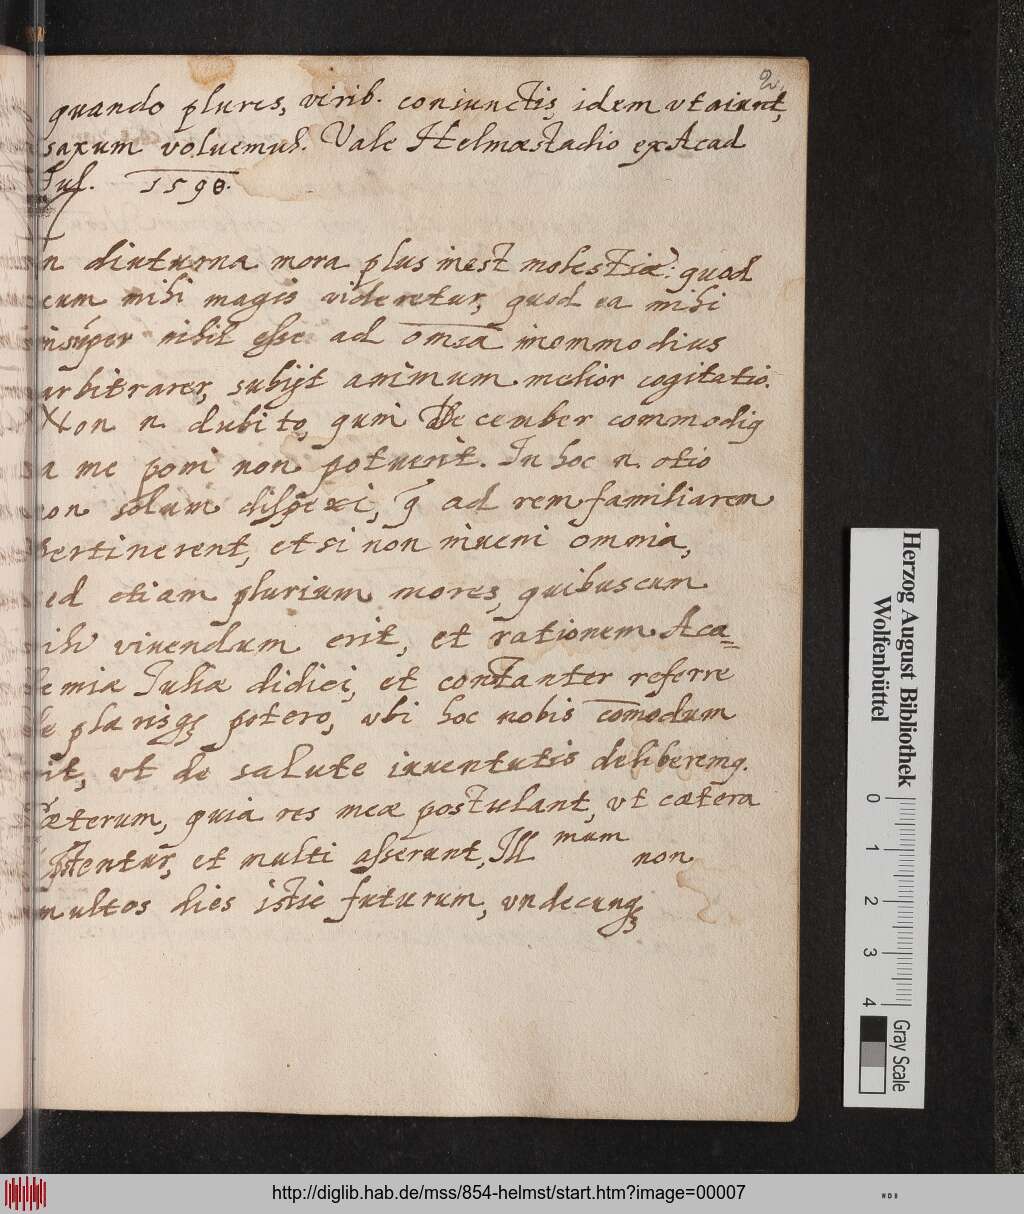 2
quando plures, virib. coniunctis, idem ut aiunt,
saxum voluemus. Vale Helmæstadio ex Acad
Jul. 1598.
n diuturna mora plus inest molestiæ: quod
cum mihi magis videretur, quod ea mihi
insuper nihil esse ad omīa inommodius
arbitrarer, subijt animum melior cogitatio.
Non n. dubito, quin December commodiq
a me poni non potuerit. In hoc n. otio
on solum dispexi, q̄ ad rem familiarem
pertinerent, etsi non inueni omnia,
ed etiam plurium mores, quibuscum
ihi viuendum erit, et rationem Aca=
demiæ Juliæ didici, et constanter referre
de plærisq; potero, ubi hoc nobis com̄odum
it, ut de salute iuuentutis deliberemq.
Cæterum, quia res meæ postulant, ut cætera
et multi asserunt, Ill mum non
multos dies istic futurum, undecunq;
Herzog August Bibliothek
Wolfenbüttel
0 1 2 3 4
Gray Scale
http://diglib.hab.de/mss/854-helmst/start.htm?image=00007
WDB